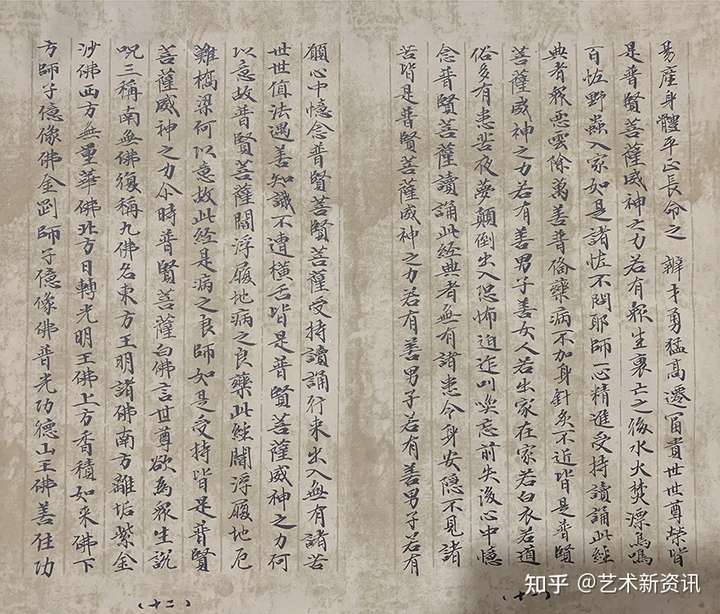 易産身體平正長命之 辯才勇猛高遷冨貴世世尊荣皆
是普賢菩薩威神之力若有衆生衰亡之後水火焚漂鳥鳴
百恠野蟲入家如是諸恠不問耶師一心精進受持讀誦此経
典者衆悪雲除萬善普俻藥病不加身針灸不近皆是普賢
菩薩威神之力若有善男子善女人若出家在家若白衣若道
俗多有患苦夜夢顛倒出入恐怖迫迮叫喚忘前失後心中憶
念普賢菩薩讀誦此経典者無有諸患令身安隱不見諸
苦皆是普賢菩薩威神之力若有善男子若有善男子若有
願心中憶念普賢菩薩受持讀誦行来出入無有諸苦
世世值法遇善知識不遭橫舌皆是普賢菩薩威神之力何
以意故普賢菩薩閻浮履地病之良藥此経閻浮履地厄
難橋梁何以意故此経是病之良師如是受持皆是普賢
菩薩威神之力尒時普賢菩薩白佛言世尊欲為衆生說
呪三稱南無佛復稱九佛名東方王明諸佛南方離垢紫金
沙佛西方無量華佛北方日轉光明王佛上方香積如来佛下
方師子億像佛金剛師子億像佛普光功德山王佛善住功
(十二)
知乎 @艺术新资讯